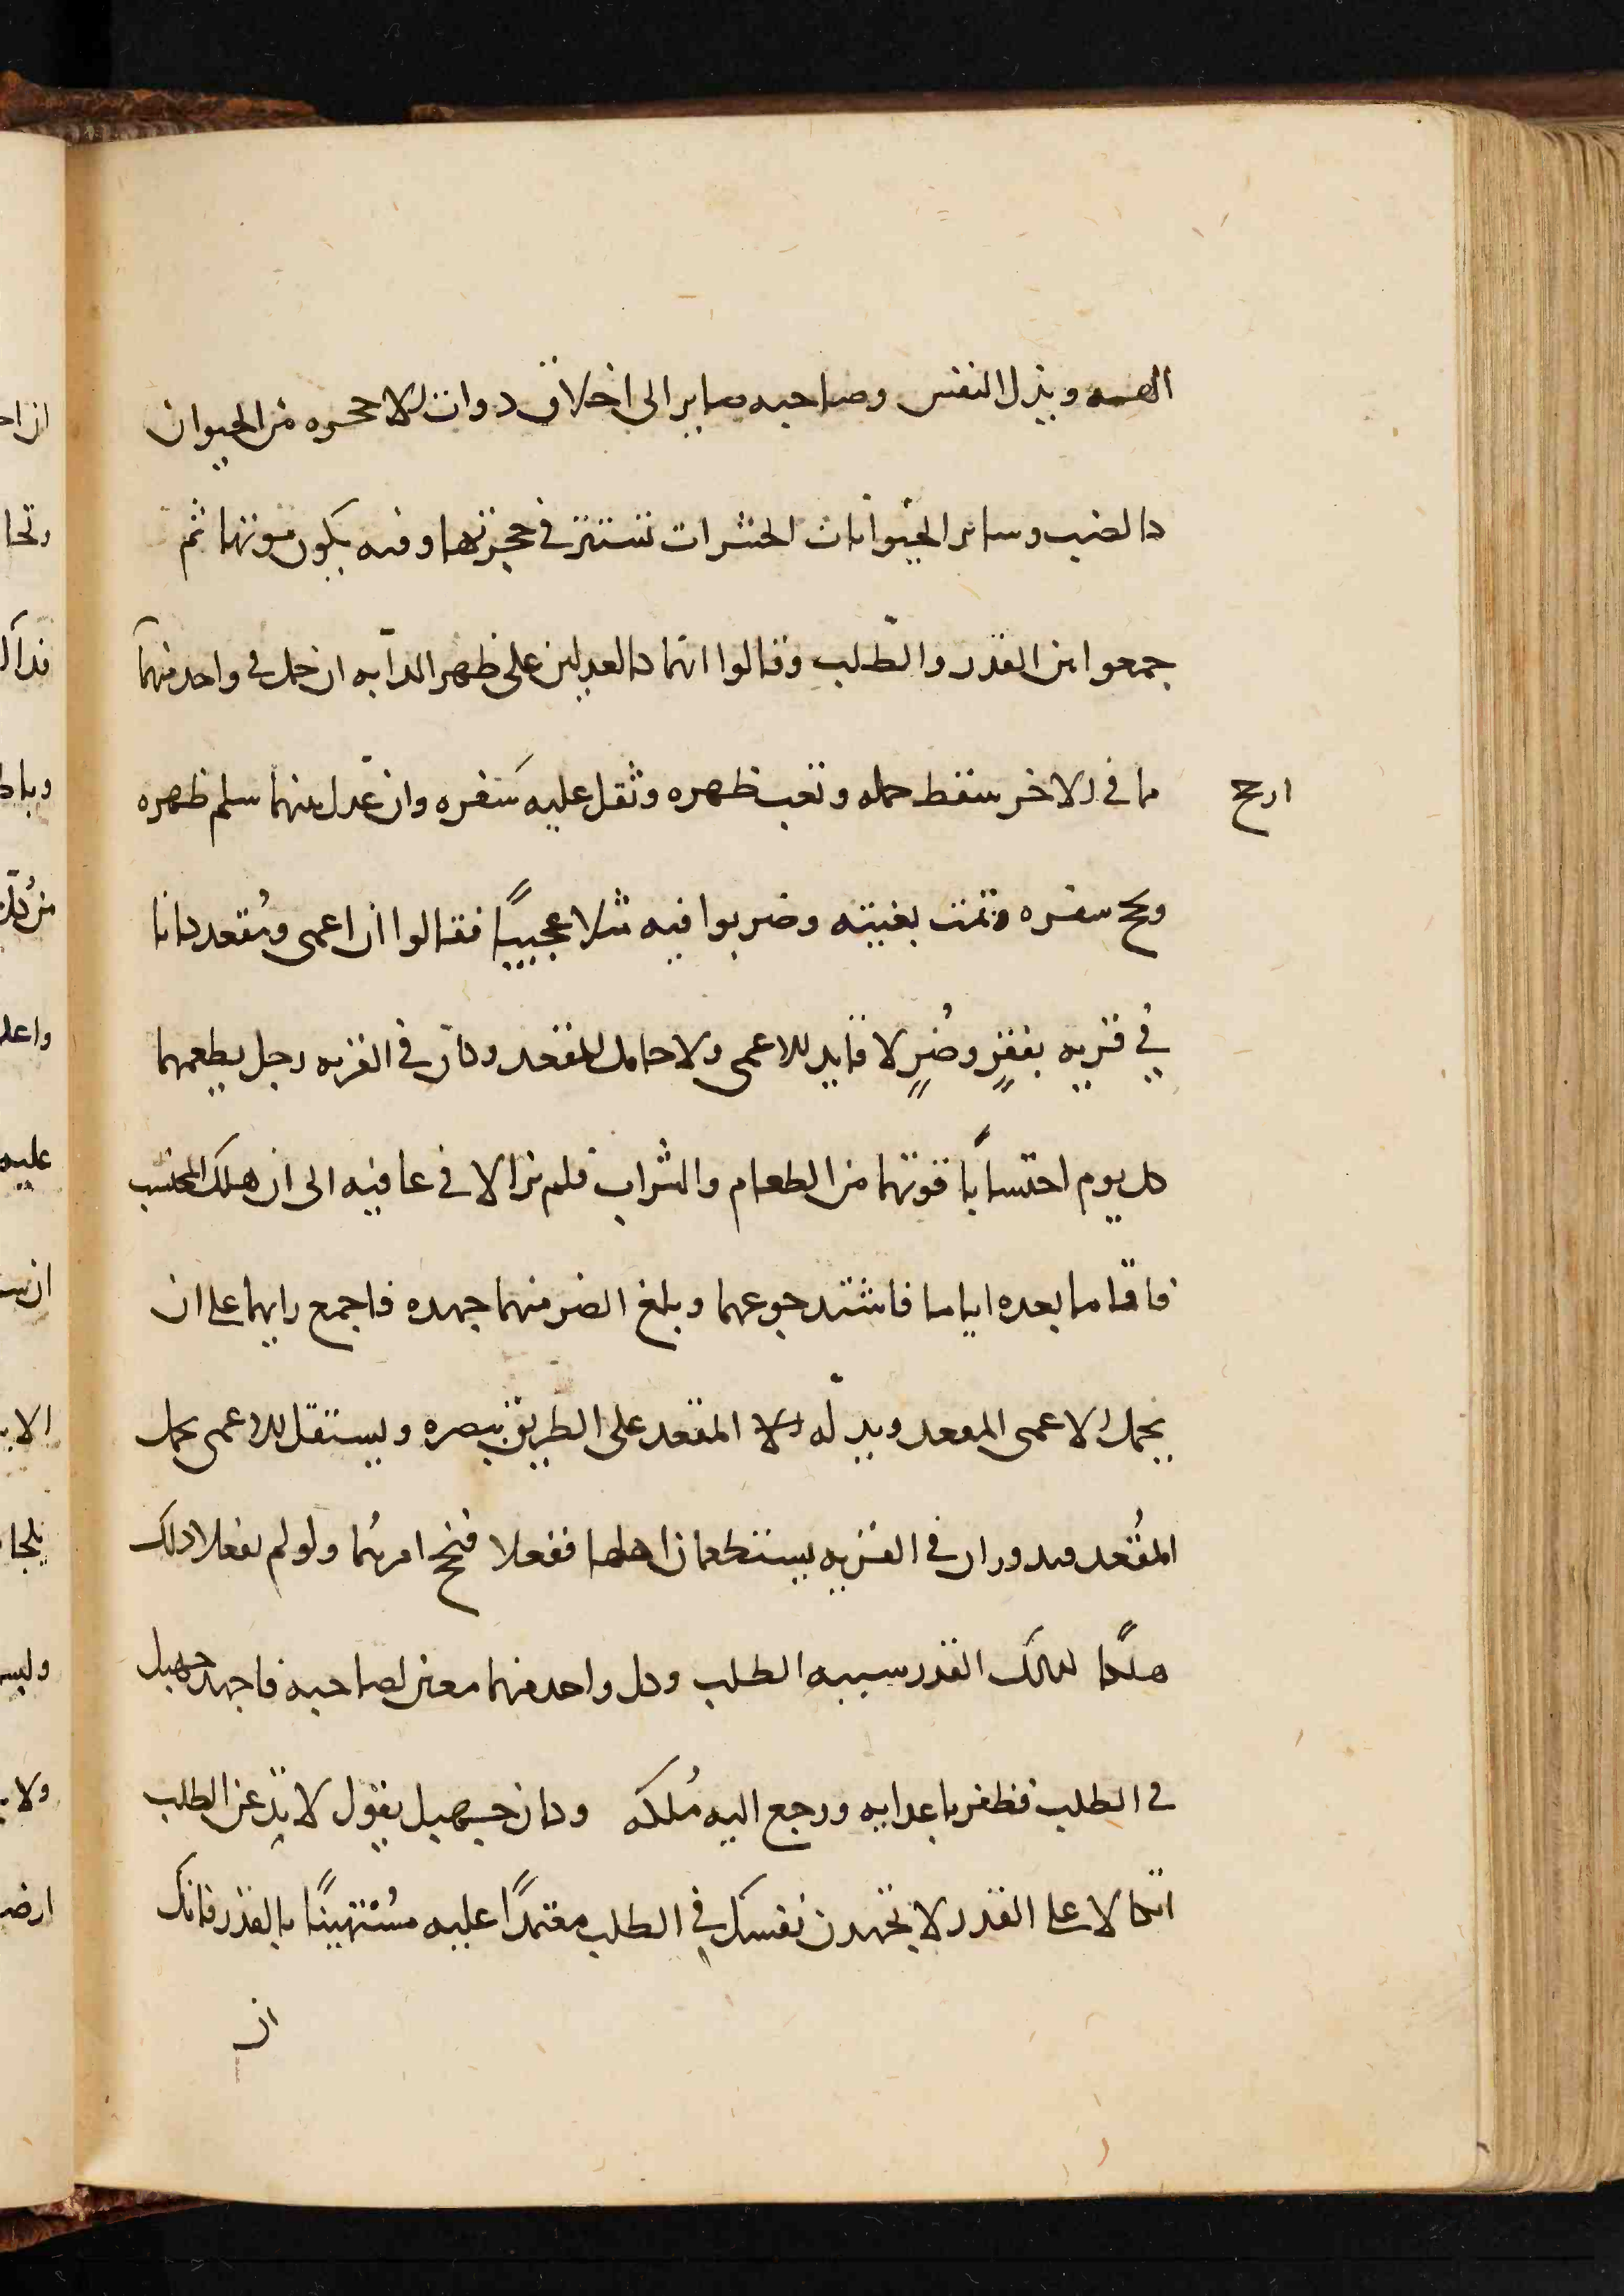 الهمه وينزل النفس وصاحبه صاير الى اخلاق ذوات الاحجره من الحيوان
كالضب وساير الحيوانات الحشرات تستتر في حجرتها وفيه يكون موتها ثم
جمعوا بين القدر والطّلب وقالوا انهما كالعدلين على ظهر الدآبه ان حمل في واحد منهما
ارجح
مما في الاخر سقط حمله وتعب ظهره وثقل عليه سَفره وان عدّل بينهما سلم ظهره
ونجح سفره وتمت بغيته وضربوا فيه مثلا عجيبًا فقالوا ان اعمى ومُقعد كانا
في قريه بفقرٍ وضُرٍ لا قايد للاعمى ولا حامل للمقعد وكان في القريه رجل يطعمهما
كل يوم احتسابًا قوتهما من الطعام والشراب فلم يزالا في عافيه الى ان هلك المحتسب
فاقاما بعده اياما فاشتد جوعهما وبلغ الضر منهما جهده فاجمع رايهما على ان
يحمل الاعمى المقعد ويدلّه المقعد على الطريق ببصره ويستقل الاعمى بحمل
المقُعد ويدوران في القريه يستطعمان اهلها ففعلا فنجح امرهُما ولو لم يفعلا ذلك
هلكا كذلك القدر سببه الطلب وكل واحد منهما معين لصاحبه فاجهد جهيل
في الطلب فظفر باعدايه ورجع اليه مُلكه وكان جيهيل يقول لا تدَعن الطلب
اتكالا على القدر لا تجهدن نفسك في الطلب معتمدًا عليه مسُتهينًا بالقدر فانك
ان